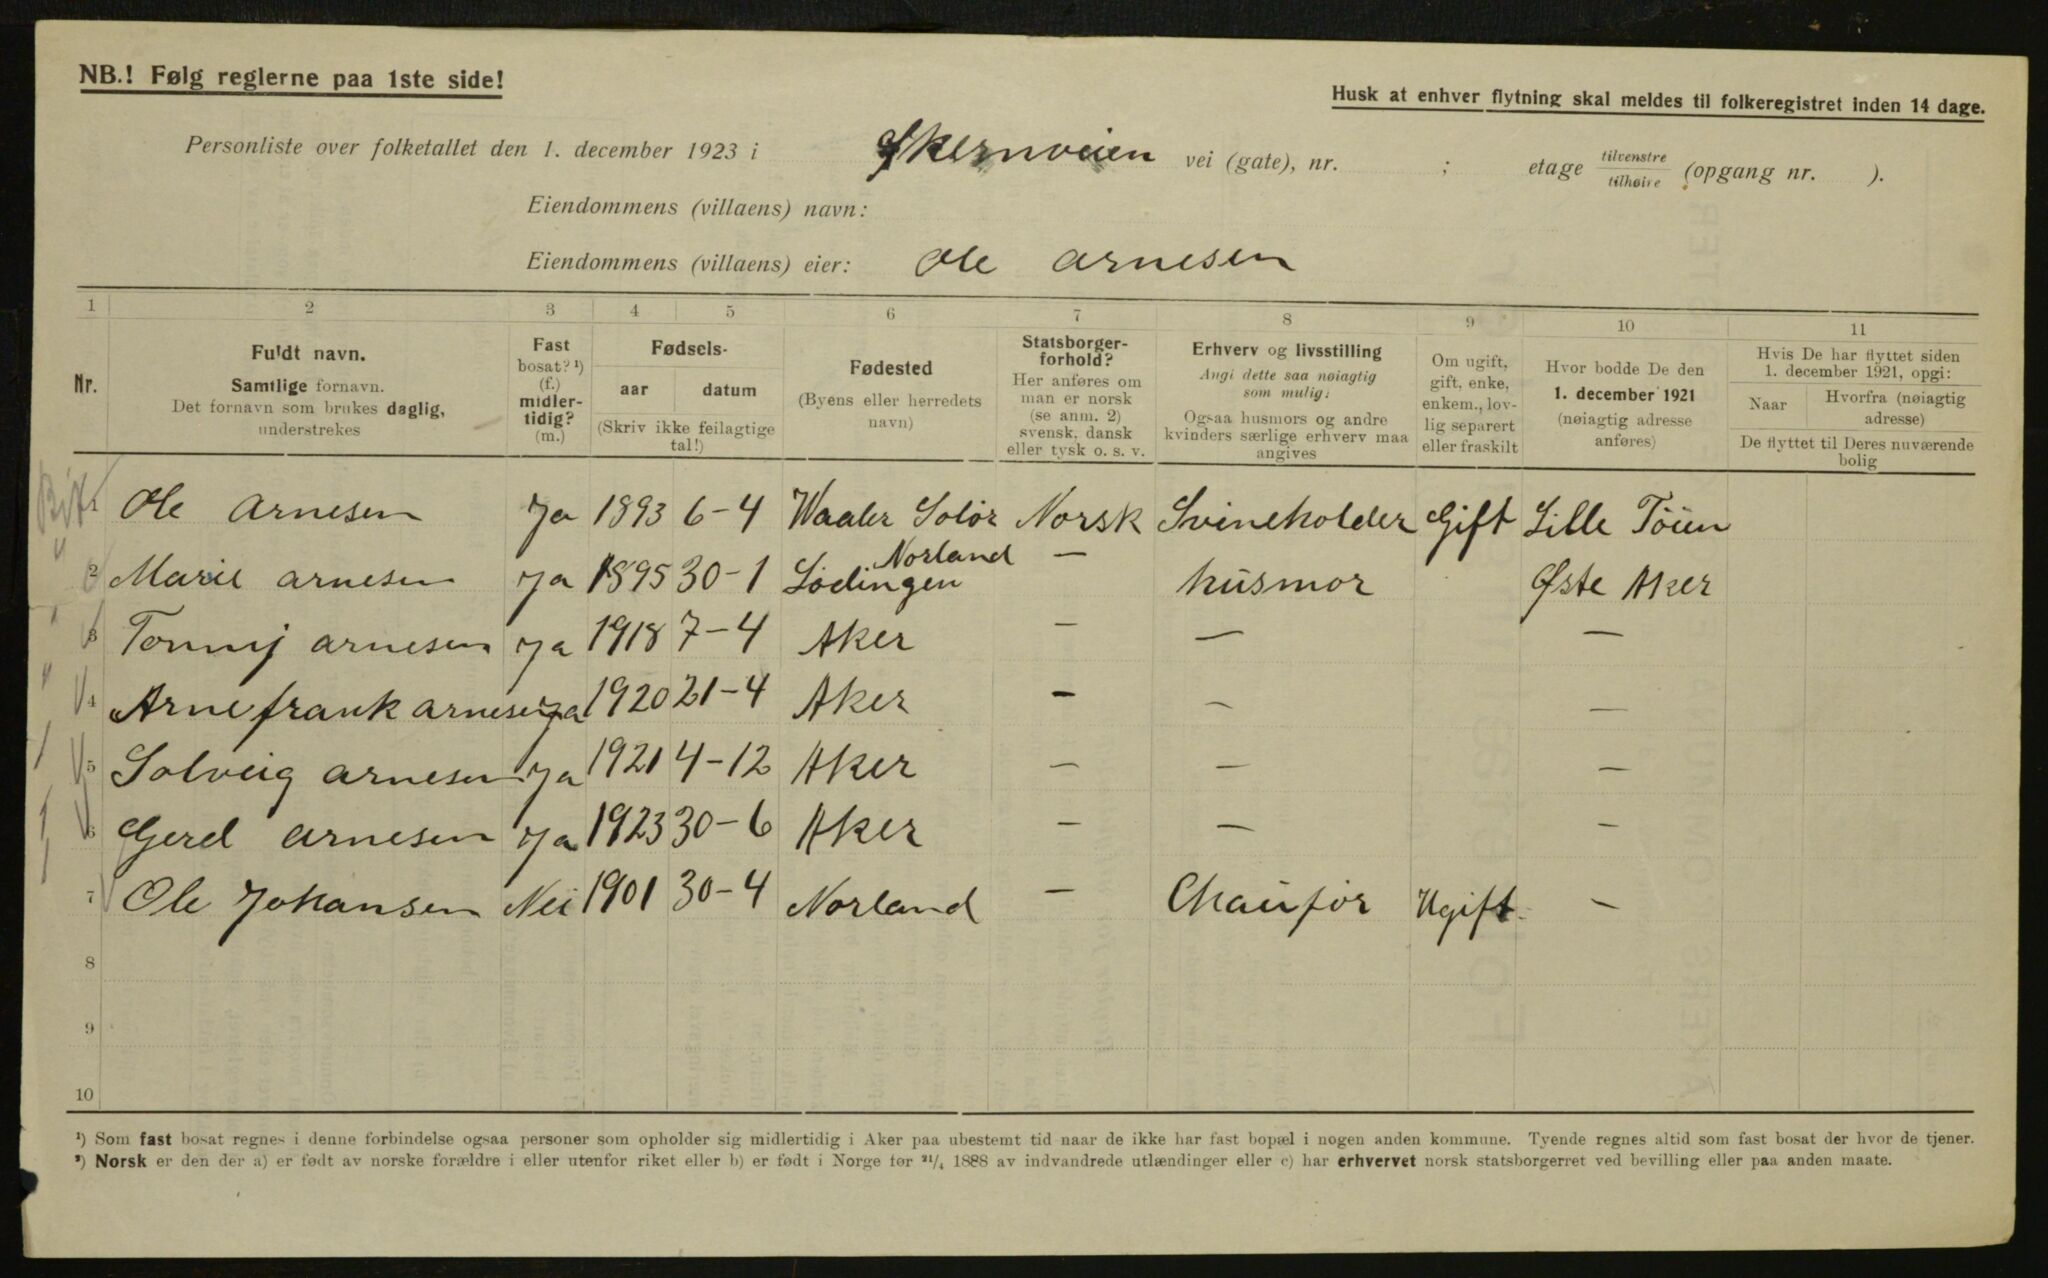 NB.! Følg reglerne paa 1ste side!
Husk at enhver flytning skal meldes til folkeregistret inden 14 dage.
Personliste over folketallet den 1. december 1923 i Økernveien vei (gate), nr. ; etage tilvenstre / tilhøire (opgang nr. ).
Eiendommens (villaens) navn:
Eiendommens (villaens) eier: Ole Arnesen
1 2 3 4 5 6 7 8 9 10 11
Nr.
Fuldt navn.
Samtlige fornavn.
Det fornavn som brukes daglig,
understrekes
Fast
bosat? ¹)
(f.)
midler-
tidig?
(m.)
Fødsels-
aar datum
(Skriv ikke feilagtige
tal!)
Fødested
(Byens eller herredets
navn)
Statsborger-
forhold?
Her anføres om
man er norsk
(se anm. 2)
svensk, dansk
eller tysk o. s. v.
Erhverv og livsstilling
Angi dette saa nøiagtig
som mulig:
Ogsaa husmors og andre
kvinders særlige erhverv maa
angives
Om ugift,
gift, enke,
enkem., lov-
lig separert
eller fraskilt
Hvor bodde De den
1. december 1921
(nøiagtig adresse
anføres)
Hvis De har flyttet siden
1. december 1921, opgi:
Naar Hvorfra (nøiagtig
adresse)
De flyttet til Deres nuværende
bolig
1 Ole Arnesen Ja 1893 6-4 Waaler Solør Norsk Svineholder Gift Lille Töien
Norland
2 Marie Arnesen Ja 1895 30-1 Lødingen — husmor Øste Aker
3 Tonny Arnesen Ja 1918 7-4 Aker — — —
4 Arne frank Arnesen Ja 1920 21-4 Aker - — —
5 Solveig Arnesen Ja 1921 4-12 Aker — — —
6 Gerd Arnesen Ja 1923 30-6 Aker — — —
7 Ole Johansen Nei 1901 30-4 Norland — Chaufør Ugift —
8
9
10
¹) Som fast bosat regnes i denne forbindelse ogsaa personer som opholder sig midlertidig i Aker paa ubestemt tid naar de ikke har fast bopæl i nogen anden kommune. Tyende regnes altid som fast bosat der hvor de tjener.
²) Norsk er den der a) er født av norske forældre i eller utenfor riket eller b) er født i Norge før ²¹/₄ 1888 av indvandrede utlændinger eller c) har erhvervet norsk statsborgerret ved bevilling eller paa anden maate.